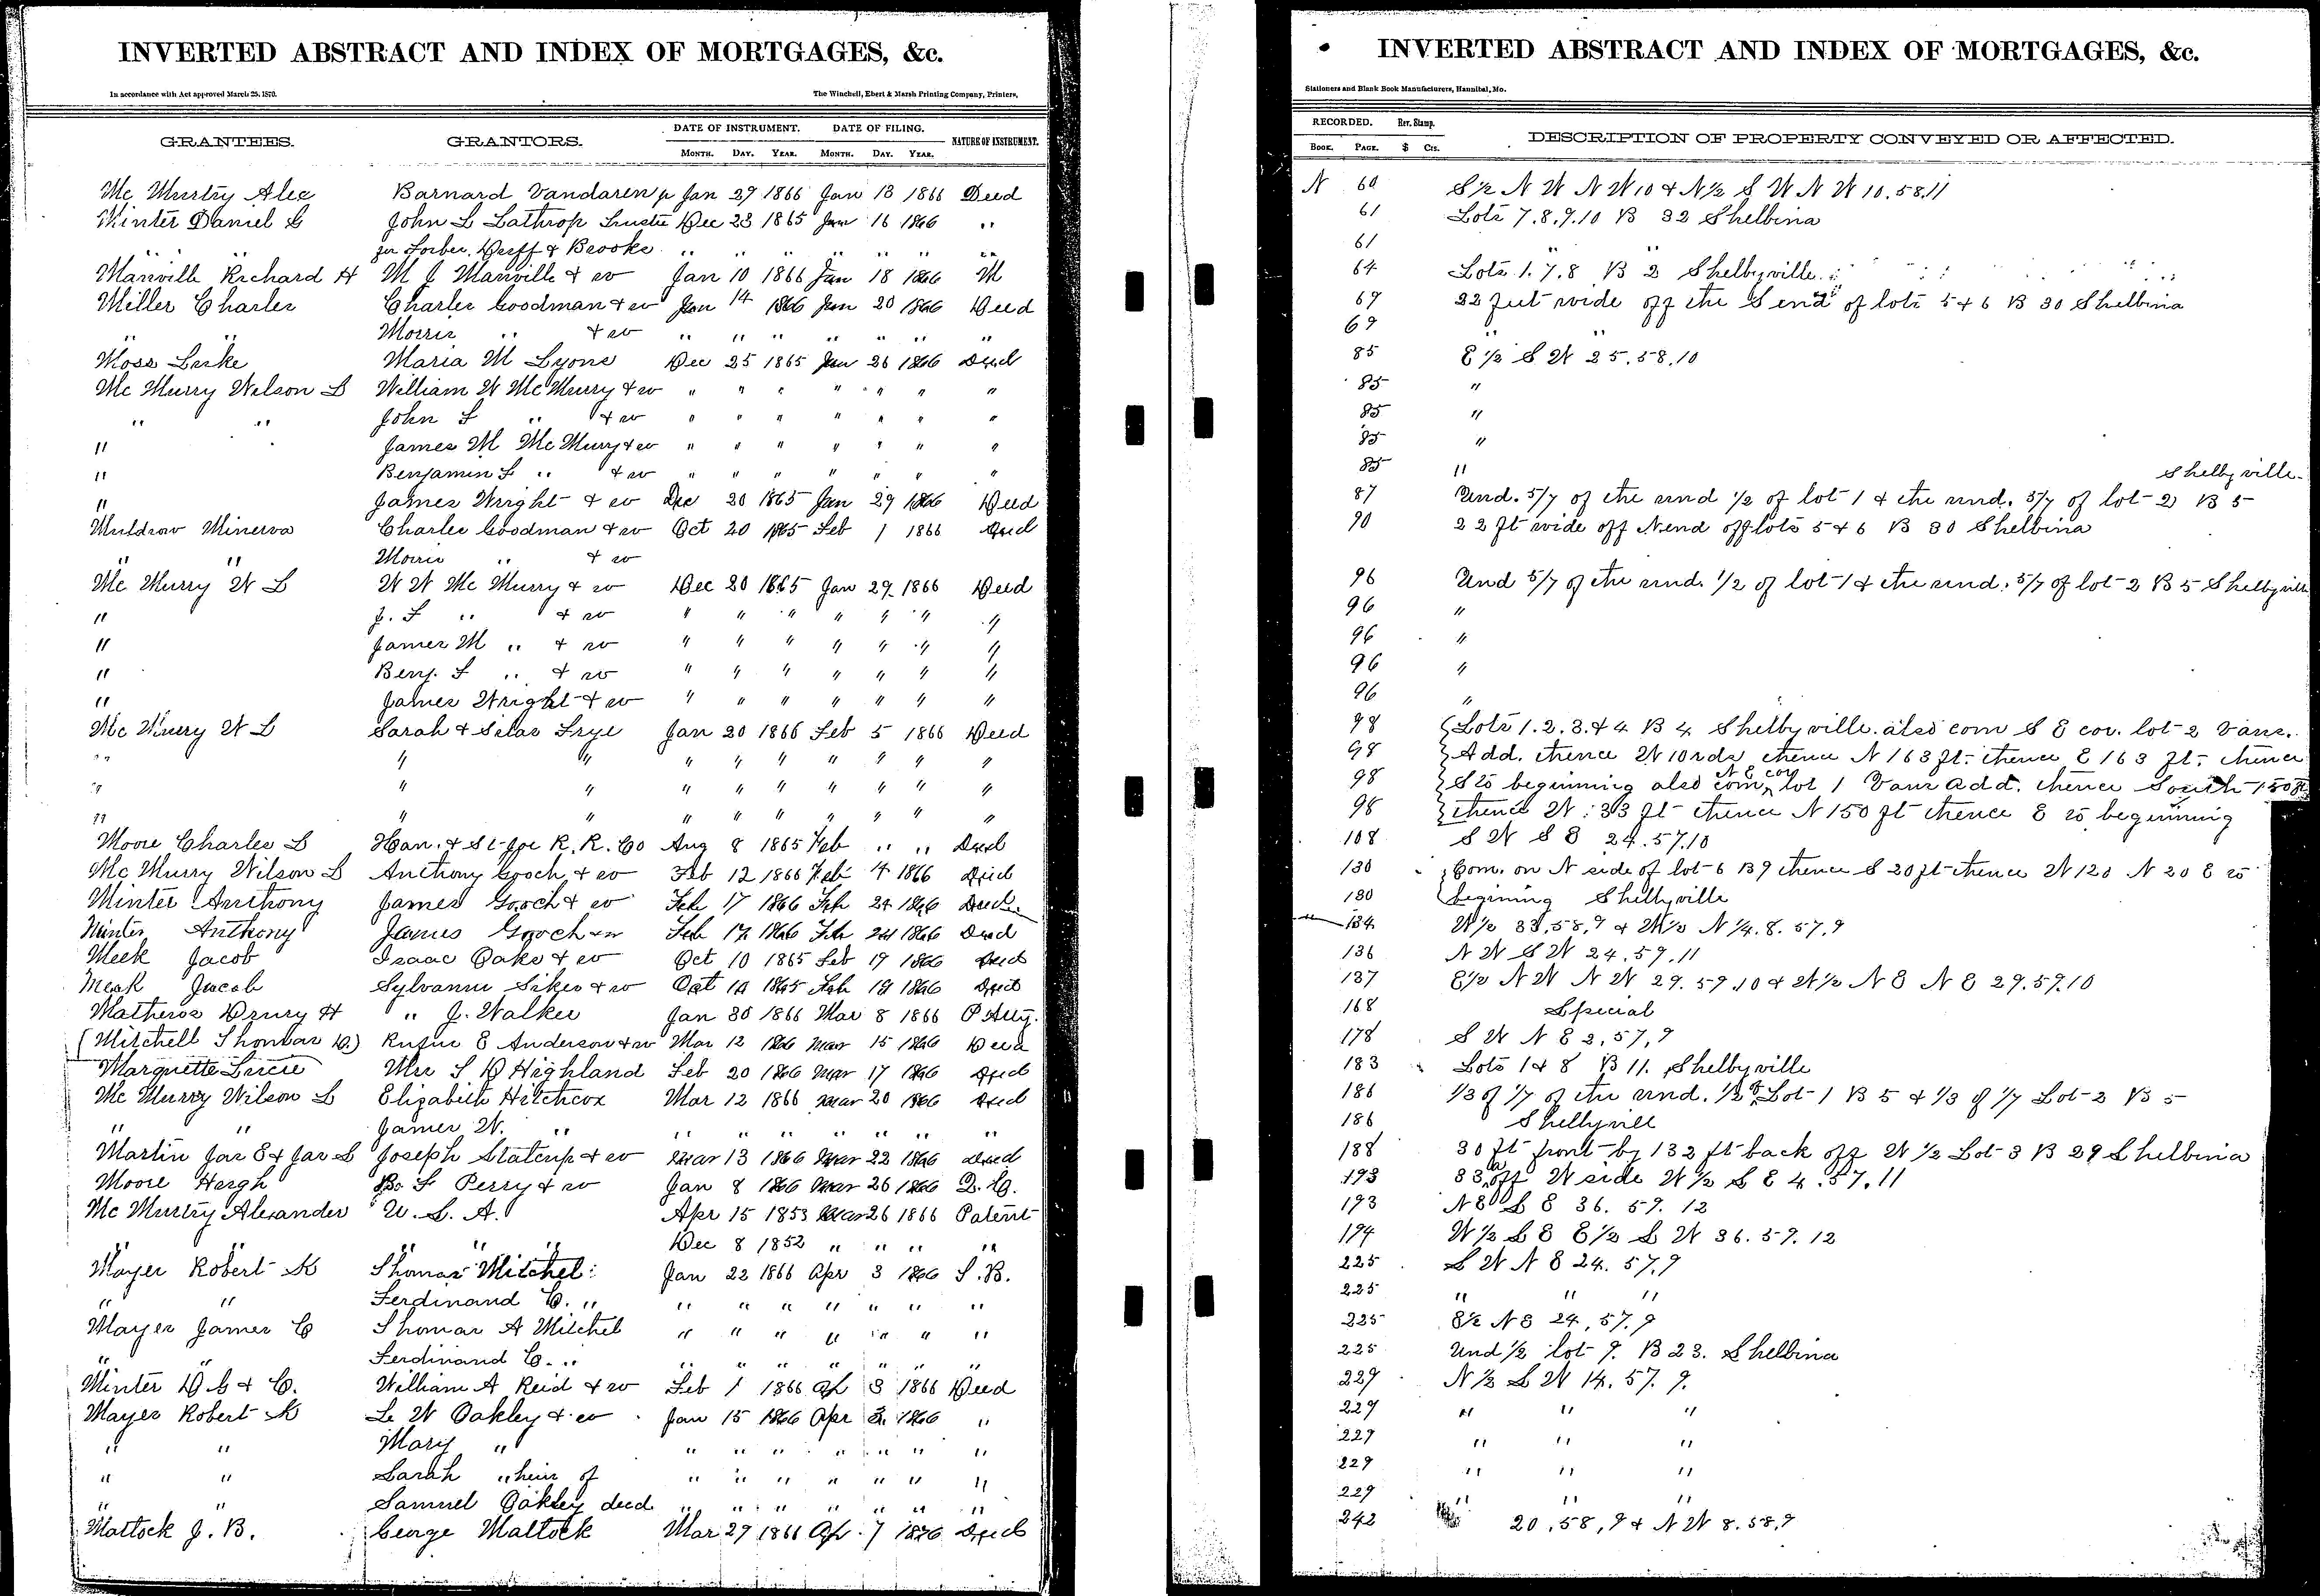 INVERTED ABSTRACT AND INDEX OF MORTGAGES, &c.
In accordance with Act approved March 25, 1870.
The Winchell, Ebert & Marsh Printing Company, Printers,
GRANTEES. GRANTORS. DATE OF INSTRUMENT. DATE OF FILING. NATURE OF INSTRUMENT.
MONTH. DAY. YEAR. MONTH. DAY. YEAR.
Mc Murtry Alex Barnard Vandaren Jr Jan 27 1866 Jan 13 1866 Deed
Minter Daniel C John L Lathrop Trustee Dec 23 1865 Jan 16 1866 "
" " for Forbes, & Brooks " " " " " " "
Manville Richard H M J Manville & w Jan 10 1866 Jan 18 1866 M
Miller Charles Charles Goodman & w Jan 14 1866 Jan 20 1866 Deed
" " Morris " & w " " " " " " "
Moss Luke Maria M Lyons Dec 25 1865 Jan 26 1866 Deed
Mc Murry Wilson L William W McMurry & w " " " " " " "
" " John F " & w " " " " " " "
" James M McMurry & w " " " " " " "
" Benjamin F " & w " " " " " " "
" James Wright & w Dec 20 1865 Jan 29 1866 Deed
Muldrow Minerva Charles Goodman & w Oct 20 1865 Feb 1 1866 Deed
" " Morris " & w
Mc Murry W L W W Mc Murry & w Dec 20 1865 Jan 29 1866 Deed
" J. F " & w " " " " " " "
" James M " & w " " " " " " "
" Benj. F " & w " " " " " " "
" James Wright & w " " " " " " "
Mc Murry W L Sarah & Silas Frye Jan 20 1866 Feb 5 1866 Deed
" " " " " " " " " "
" " " " " " " " " "
" " " " " " " " " "
Moore Charles L Han. & St Joe R. R. Co Aug 8 1865 Feb " " Deed
Mc Murry Wilson L Anthony Gooch & w Feb 12 1866 Feb 14 1866 Deed
Minter Anthony James Gooch & w Feb 17 1866 Feb 24 1866 Deed
Minter Anthony James Gooch & w Feb 17 1866 Feb 24 1866 Deed
Meek Jacob Isaac Oaks & w Oct 10 1865 Feb 19 1866 Deed
Meek Jacob Sylvanus Sikes & w Oct 14 1865 Feb 19 1866 Deed
Matheros Drury H " J. Walker Jan 30 1866 Mar 8 1866 P Atty.
(Mitchell Thomas D.) Rufus E Anderson & w Mar 12 1866 Mar 15 1866 Deed
Marquette Lucie Mrs S D Highland Feb 20 1866 Mar 17 1866 Deed
Mc Murry Wilson L Elizabeth Hitchcox Mar 12 1866 Mar 20 1866 Deed
" " James W. " " " " " " " "
Martin Jas E & Jas L Joseph Stateup & w Mar 13 1866 Mar 22 1866 Deed
Moore Hergh B. F Perry & w Jan 8 1866 Mar 26 1866 D. Tg.
Mc Murtry Alexander U. S. A. Apr 15 1853 Mar 26 1866 Patent
" " " " " Dec 8 1852 " " " "
Mayer Robert K Thomas Mitchel Jan 22 1866 Apr 3 1866 T. B.
" " Ferdinand C. " " " " " " " "
Mayer James C Thomas A Mitchel " " " " " " "
" " Ferdinand C. " " " " " " " "
Minter D C & C. William A Reid & w Feb 1 1866 Ap 3 1866 Deed
Mayer Robert K Le W Oakley & w Jan 15 1866 Apr 3 1866 "
" " Mary " " " " " " " "
" " Sarah " heirs of " " " " " " "
" " Samuel Oakley decd. " " " " " " "
Mattock J. B. George Mattock Mar 27 1866 Ap 7 1866 Deed
INVERTED ABSTRACT AND INDEX OF MORTGAGES, &c.
Stationers and Blank Book Manufacturers, Hannibal, Mo.
RECORDED. Rev. Stamp. DESCRIPTION OF PROPERTY CONVEYED OR AFFECTED.
BOOK. PAGE. $ Cts.
N 60 S½ N W N W 10 & N½ S W N W 10.58.11
61 Lots 7.8.9.10 B 32 Shelbina
61 " "
64 Lots 1.7.8 B 2 Shelbyville.
69 22 feet wide off the S end of lots 5 & 6 B 30 Shelbina
69 " "
85 E ½ S W 25.58.10
85 "
85 "
85 "
85 "
Shelbyville.
87 Und. 5/7 of the und ½ of lot 1 & the und. 5/7 of lot 2 B 5
90 22 ft wide off N end off lots 5 & 6 B 30 Shelbina
96 Und 5/7 of the und. ½ of lot 1 & the und. 5/7 of lot 2 B 5 Shelbyville
96 "
96 "
96 "
96 "
98 Lots 1.2.3.&4 B 4 Shelbyville. also com S E cor. lot 2 Vans.
98 Add. thence W 10 rds thence N 163 ft. thence E 163 ft. thence
98 S to beginning also com N E cor lot 1 Vans Add. thence South 150 ft
98 thence W 33 ft thence N 150 ft thence E to beginning
108 S W S E 24.57.10
130 Com. on N side of lot 6 B 9 thence S 20 ft thence W 120 N 20 E to
130 begining Shelbyville
134 W½ 33.58.9 & W½ N ¼.8.57.9
136 N W S W 24.59.11
137 E½ N W N W 29.59.10 & W½ N E N E 29.59.10
168 Special
178 S W N E 2.57.9
183 Lots 1 & 8 B 11. Shelbyville
186 1/3 of 1/7 of the und. ½ of Lot 1 B 5 & 1/3 of 1/7 Lot 2 B 5
186 Shelbyville
188 30 ft front by 132 ft back off W ½ Lot 3 B 29 Shelbina
193 33 a off W side W ½ S E 4.57.11
193 N E S E 36.59.12
194 W ½ S E E ½ S W 36.59.12
225 S W N E 24.57.9
225 " " "
225 E½ N E 24.57.9
225 Und ½ lot 9. B 23. Shelbina
229 N ½ S W 14.57.9.
229 " " "
229 " " "
229 " " "
229 " " "
242 20.58.9 & N W 8.58.9